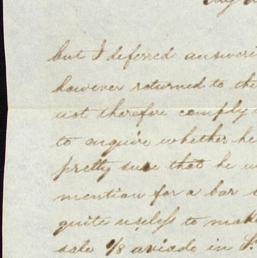 but I deferred answeri
however returned to the
not therefore comply
to enquire whether he
pretty sure that he w
mention for a bar
quite useless to mak
sale in